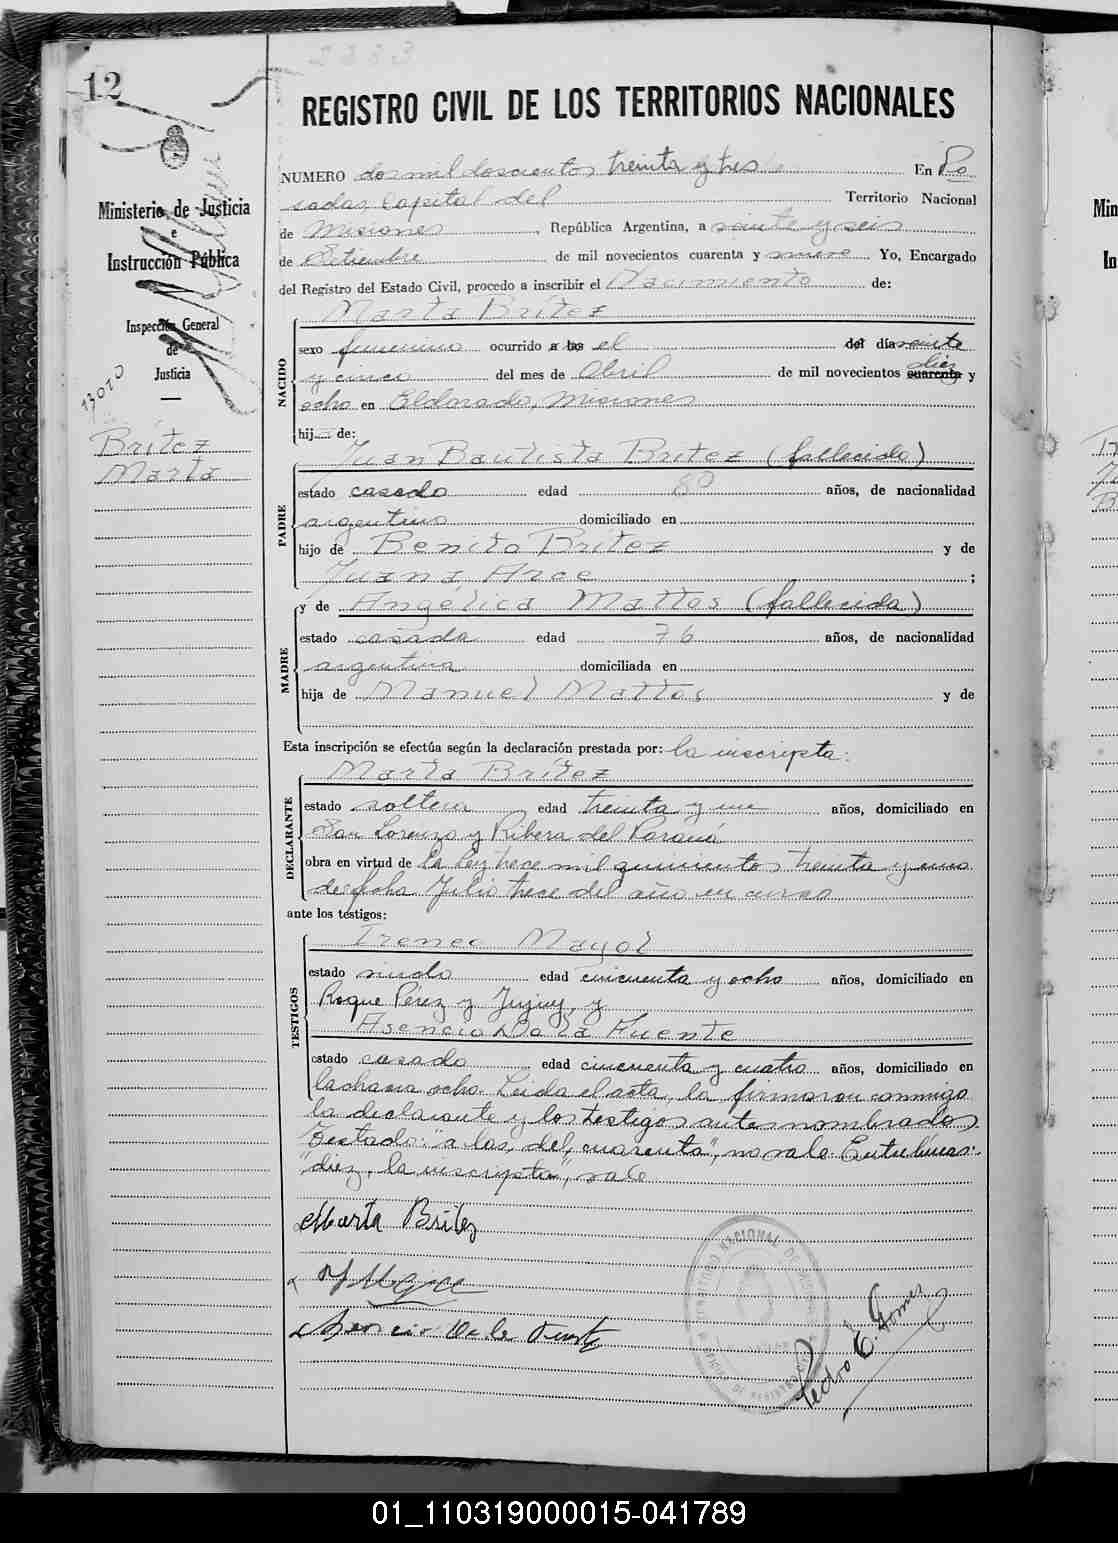 12
Ministerio de Justicia
e
Instrucción Pública
Inspección General
de
Justicia
13020
Britez
Marta
2233
REGISTRO CIVIL DE LOS TERRITORIOS NACIONALES
NUMERO dos mil doscientos treinta y tres En Po
sadas, Capital del Territorio Nacional
de Misiones, República Argentina, a veinte y seis
de Setiembre de mil novecientos cuarenta y nueve Yo, Encargado
del Registro del Estado Civil, procedo a inscribir el Nacimiento de:
Marta Britez
NACIDO
sexo femenino ocurrido a las el del día veinte
y cinco del mes de Abril de mil novecientos cuarenta diez y
ocho en Eldorado, Misiones
hij de:
Juan Bautista Britez (fallecido)
PADRE
estado casado edad 80 años, de nacionalidad
argentino domiciliado en
hijo de Benito Britez y de
Juana Arce ;
y de Angélica Mattos (fallecida)
MADRE
estado casada edad 76 años, de nacionalidad
argentina domiciliada en
hija de Manuel Mattos y de
Esta inscripción se efectúa según la declaración prestada por: la inscripta:
Marta Britez
DECLARANTE
estado soltera edad treinta y un años, domiciliado en
San Lorenzo y Ribera del Paraná
obra en virtud de la Ley trece mil quinientos treinta y uno
de fecha Julio trece del año en curso
ante los testigos:
Ireneo Mayol
TESTIGOS
estado viudo edad cincuenta y ocho años, domiciliado en
Roque Pérez y Jujuy, y
Asencio De la Fuente
estado casado edad cincuenta y cuatro años, domiciliado en
la chacra ocho. Leida el acta, la firmaron conmigo
la declarante y los testigos antes nombrados.
Testado: "a las, del, cuarenta", no vale. Entrelíneas:
"diez, la inscripta", vale
Marta Britez
Asencio De la Fuente
Pedro E. Gomez
01_110319000015-041789